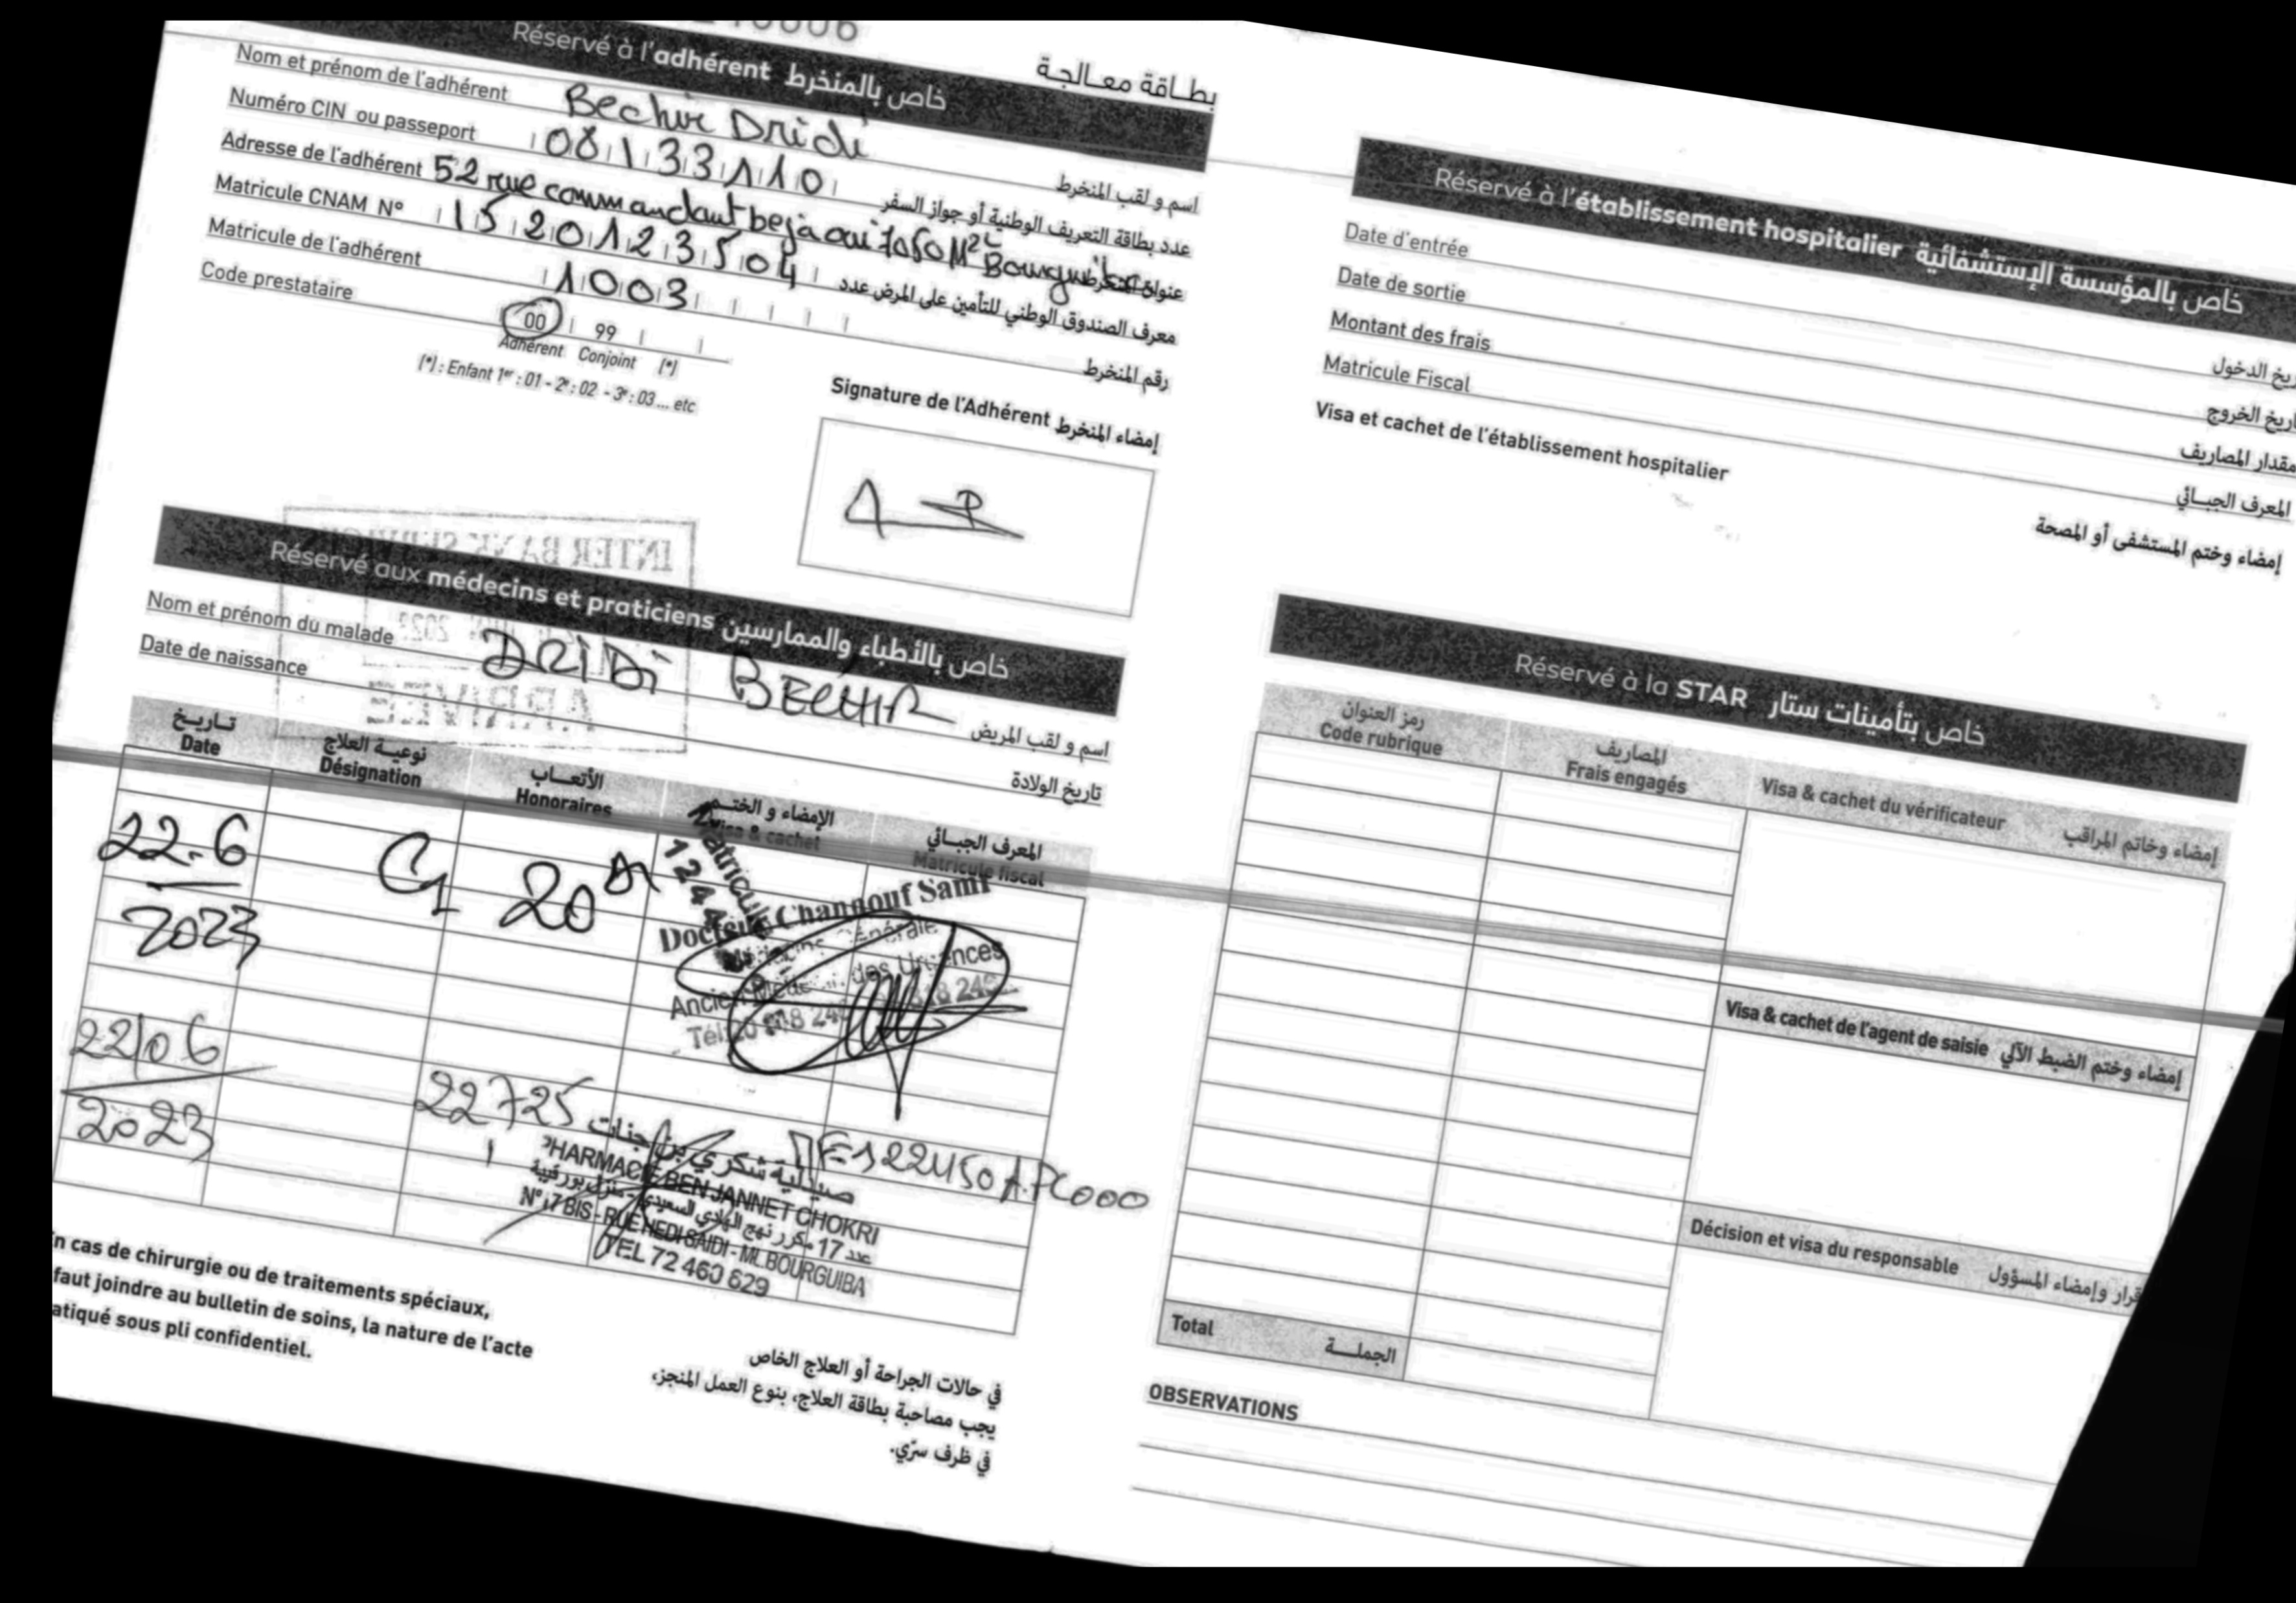 بطـاقة معـالجـة
Réservé à l'adhérent خاص بالمنخرط
Nom et prénom de l'adhérent Bechir Dridi اسم و لقب المنخرط
Numéro CIN ou passeport 08133110 عدد بطاقة التعريف الوطنية أو جواز السفر
Adresse de l'adhérent 52 rue commandant bejaoui 7050 عنوان المنخرط
Matricule CNAM N° 1520123504 معرف الصندوق الوطني للتأمين على المرض عدد
Matricule de l'adhérent 1003 رقم المنخرط
Code prestataire 00 99
Adhérent Conjoint (*)
(*) : Enfant 1er : 01 - 2e : 02 - 3e : 03 ... etc
Signature de l'Adhérent إمضاء المنخرط
Réservé aux médecins et praticiens خاص بالأطباء والممارسين
Nom et prénom du malade DRIDI BECHIR اسم و لقب المريض
Date de naissance تاريخ الولادة
تـاريـخ نوعيـة العلاج الأتعـاب الإمضاء و الختـم المعرف الجبـائي
Date Désignation Honoraires Visa & cachet Matricule fiscal
22.6 2023 C1 20
Matricule
Docteur Channouf Sami
Médecine Générale
des Urgences
22/06 2023 22725
صيدلية شكري بن جنات
PHARMACIE BEN JANNET CHOKRI
عدد 17 مكرر نهج الهادي السعيدي - منزل بورقيبة
N° 17 BIS - RUE HEDI SAIDI - ML BOURGUIBA
TEL 72 460 629
En cas de chirurgie ou de traitements spéciaux,
faut joindre au bulletin de soins, la nature de l'acte
pratiqué sous pli confidentiel.
في حالات الجراحة أو العلاج الخاص
يجب مصاحبة بطاقة العلاج، بنوع العمل المنجز،
في ظرف سرّي.
Réservé à l'établissement hospitalier خاص بالمؤسسة الإستشفائية
Date d'entrée تاريخ الدخول
Date de sortie تاريخ الخروج
Montant des frais مقدار المصاريف
Matricule Fiscal المعرف الجبـائي
Visa et cachet de l'établissement hospitalier إمضاء وختم المستشفى أو المصحة
Réservé à la STAR خاص بتأمينات ستار
رمز العنوان المصاريف
Code rubrique Frais engagés Visa & cachet du vérificateur إمضاء وخاتم المراقب
Visa & cachet de l'agent de saisie إمضاء وختم الضبط الآلي
Décision et visa du responsable قرار وإمضاء المسؤول
Total الجملـــة
OBSERVATIONS